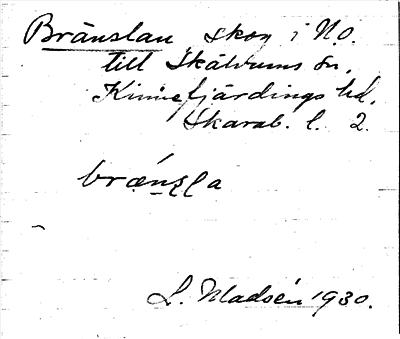 Brånslan skog i N.O.
till Skälvums sn,
Kinnefjärdings hd,
Skarab. l. 2.
bræ´nsla
L. Madsén 1930.